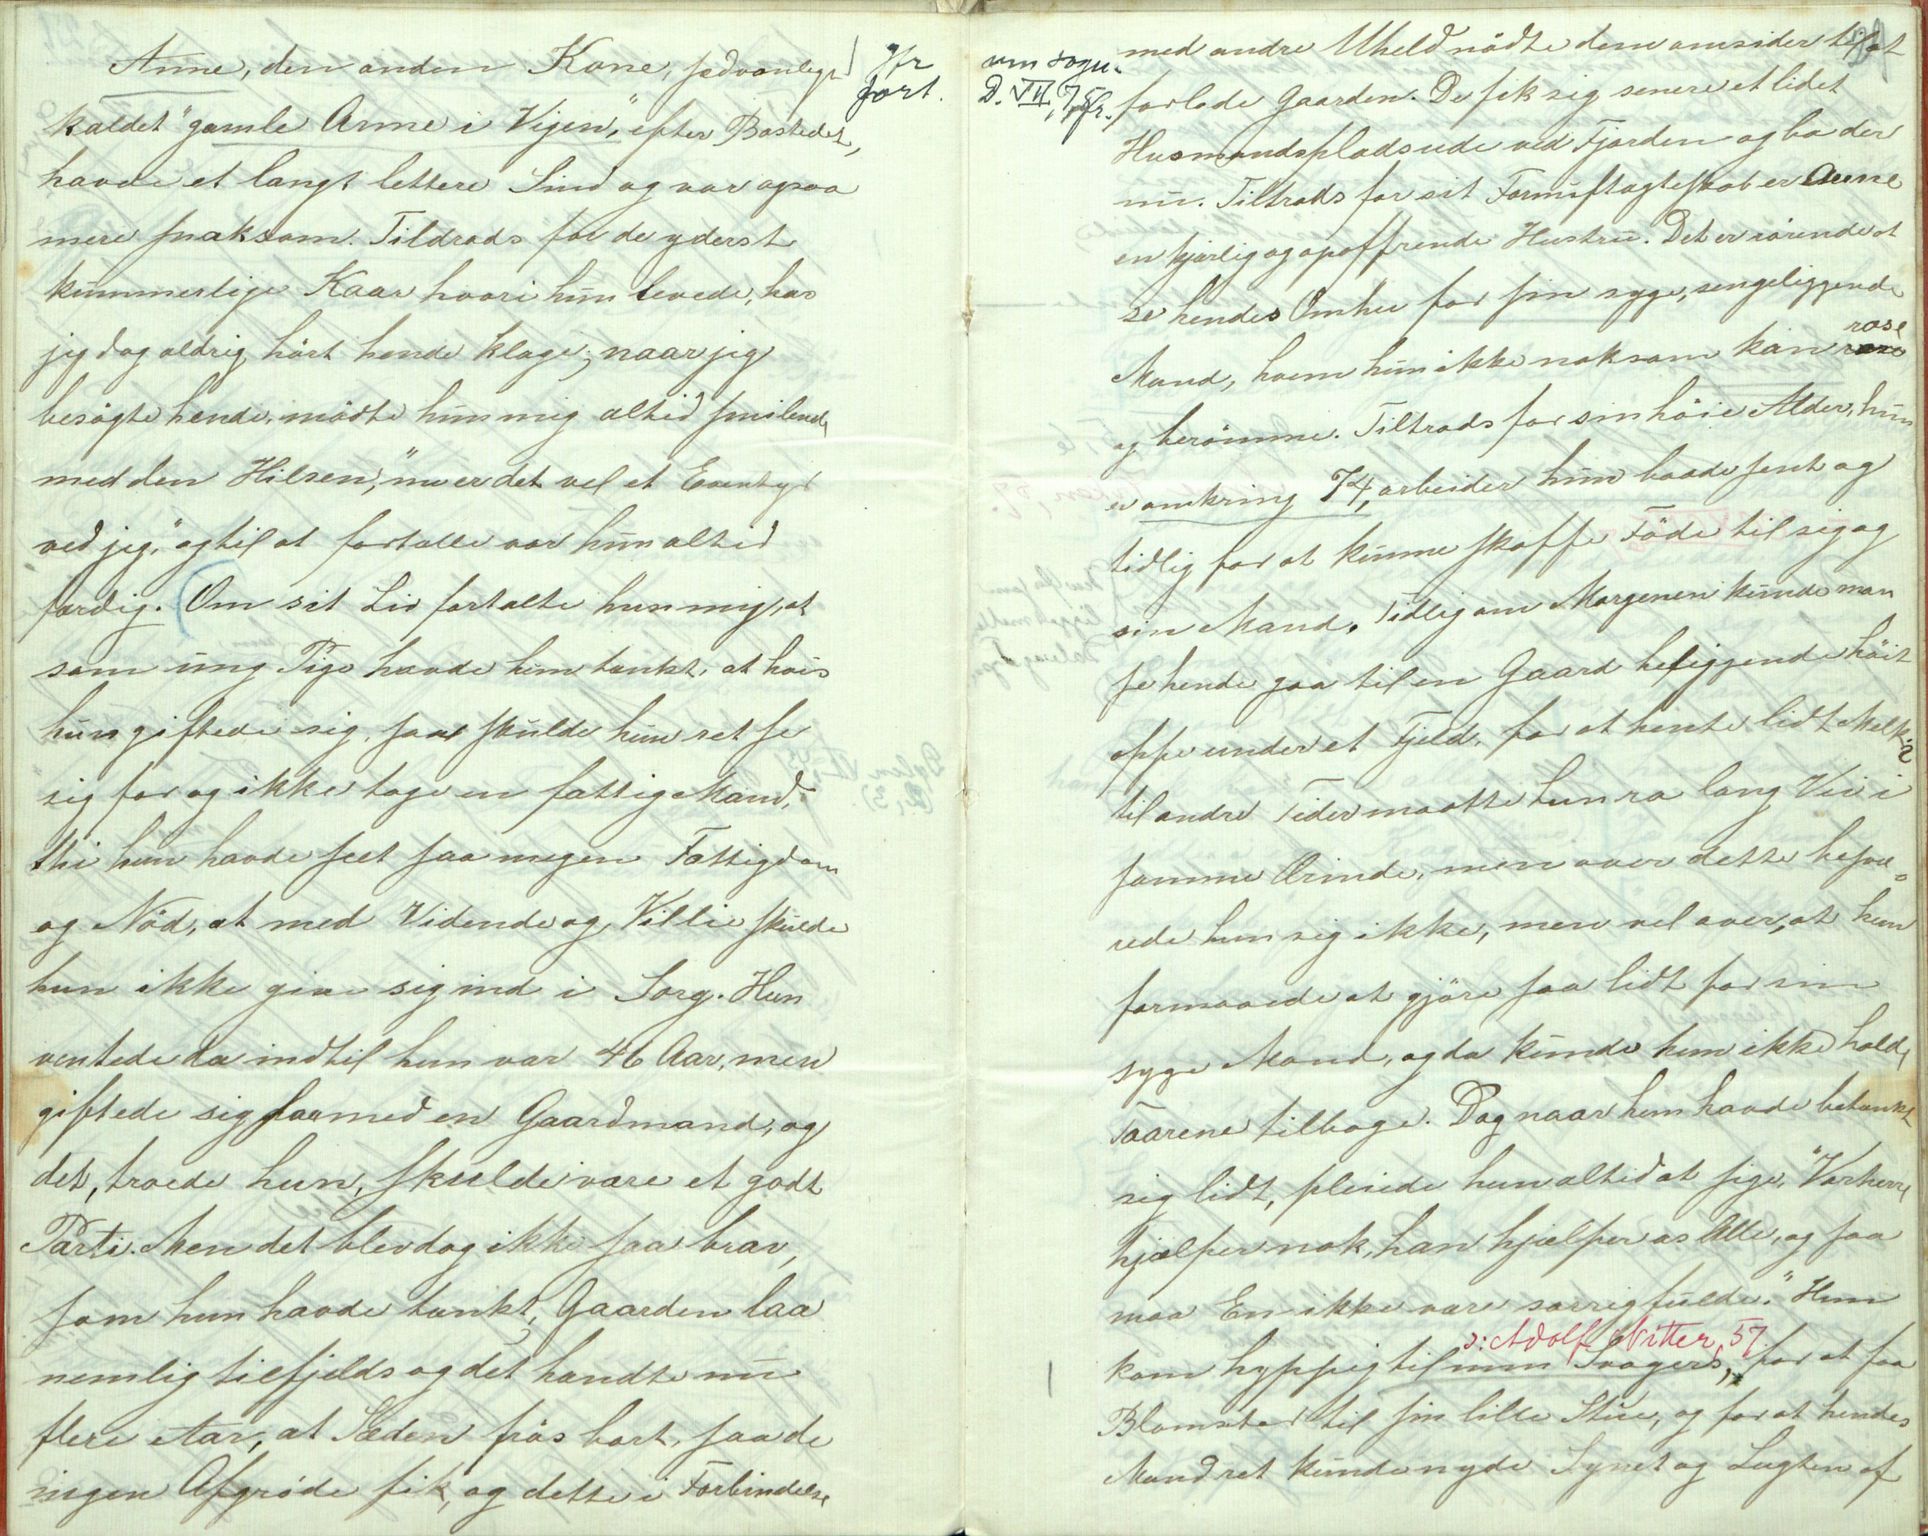 Anne, den anden Kone, sædvanligt
kaldet "gamle Anne i Vigen", efter Bostedet,
havde et langt lettere Sind og var ogsaa
mere snaksom. Tildrods for de yderst
kummerlige Kaar hvori hun levede, har
jeg dog aldrig hört hende klage; naar jeg
besögte hende, mödte hun mig altid smilende
med den Hilsen, "nu er det vel et Eventyr
ved jeg," og til at fortælle var hun altid
færdig. (Om sit Liv fortalte hun mig, at
som ung Pige havde hun tænkt, at hvis
hun giftede sig, saa skulde hun ret se
sig for og ikke tage en fattig Mand,
thi hun havde seet saa megen Fattigdom
og Nöd, at med Vidende og Villie skulde
hun ikke give sig ind i Sorg. Hun
ventede da indtil hun var 46 Aar, men
giftede sig saa med en Gaardmand, og
det, troede hun, skulde være et godt
Parti. Men det blev dog ikke saa brav,
som hun havde tænkt, Gaarden laa
nemlig tilfjelds og det hændte nu
flere Aar, at Sæden frös bort, saa de
ingen Afgröde fik, og dette i Forbindelse
jfr
fort.
om sogn.
D. VII, 75 fr.
med andre Uheld nödte dem omsider til at
forlade Gaarden. De fik sig senere et lidet
Husmandsplads ude ved Fjorden og bo der
nu. Tiltrods for sit Fornuftægteskab er Anne
en kjærlig og opoffrende Hustru. Det er rörende at
se hendes Omhu for sin syge, sengeliggende
Mand, hvem hun ikke noksom kan rose
og berömme. Tiltrods for sin höie Alder, hun
er omkring 74, arbeider hun baade sent og
tidlig for at kunne skaffe Föde til sig og
sin Mand. Tidlig om Morgenen kunde man
se hende gaa til en Gaard beliggende höit
oppe under et Fjeld, for at hente lidt Melk;
til andre Tider maatte hun ro lang Vei i
samme Ærinde, men over dette besvæ-
rede hun sig ikke, men vel over, at hun
formaaede at gjöre saa lidt for sin
syge Mand, og da kunde hun ikke holde
Taarene tilbage. Dog naar hun havde betænkt
sig lidt, pleiede hun altid at sige, "Vorherre
hjælper nok, han hjælper os Alle, og saa
maa En ikke være sorrigfulde." Hun
ɔ: Adolf Nitter, 57
kom hyppig til min Svogers, for at faa
Blomster til sin lille Stue, og for at hendes
Mand ret kunde nyde Synet og Lugten af